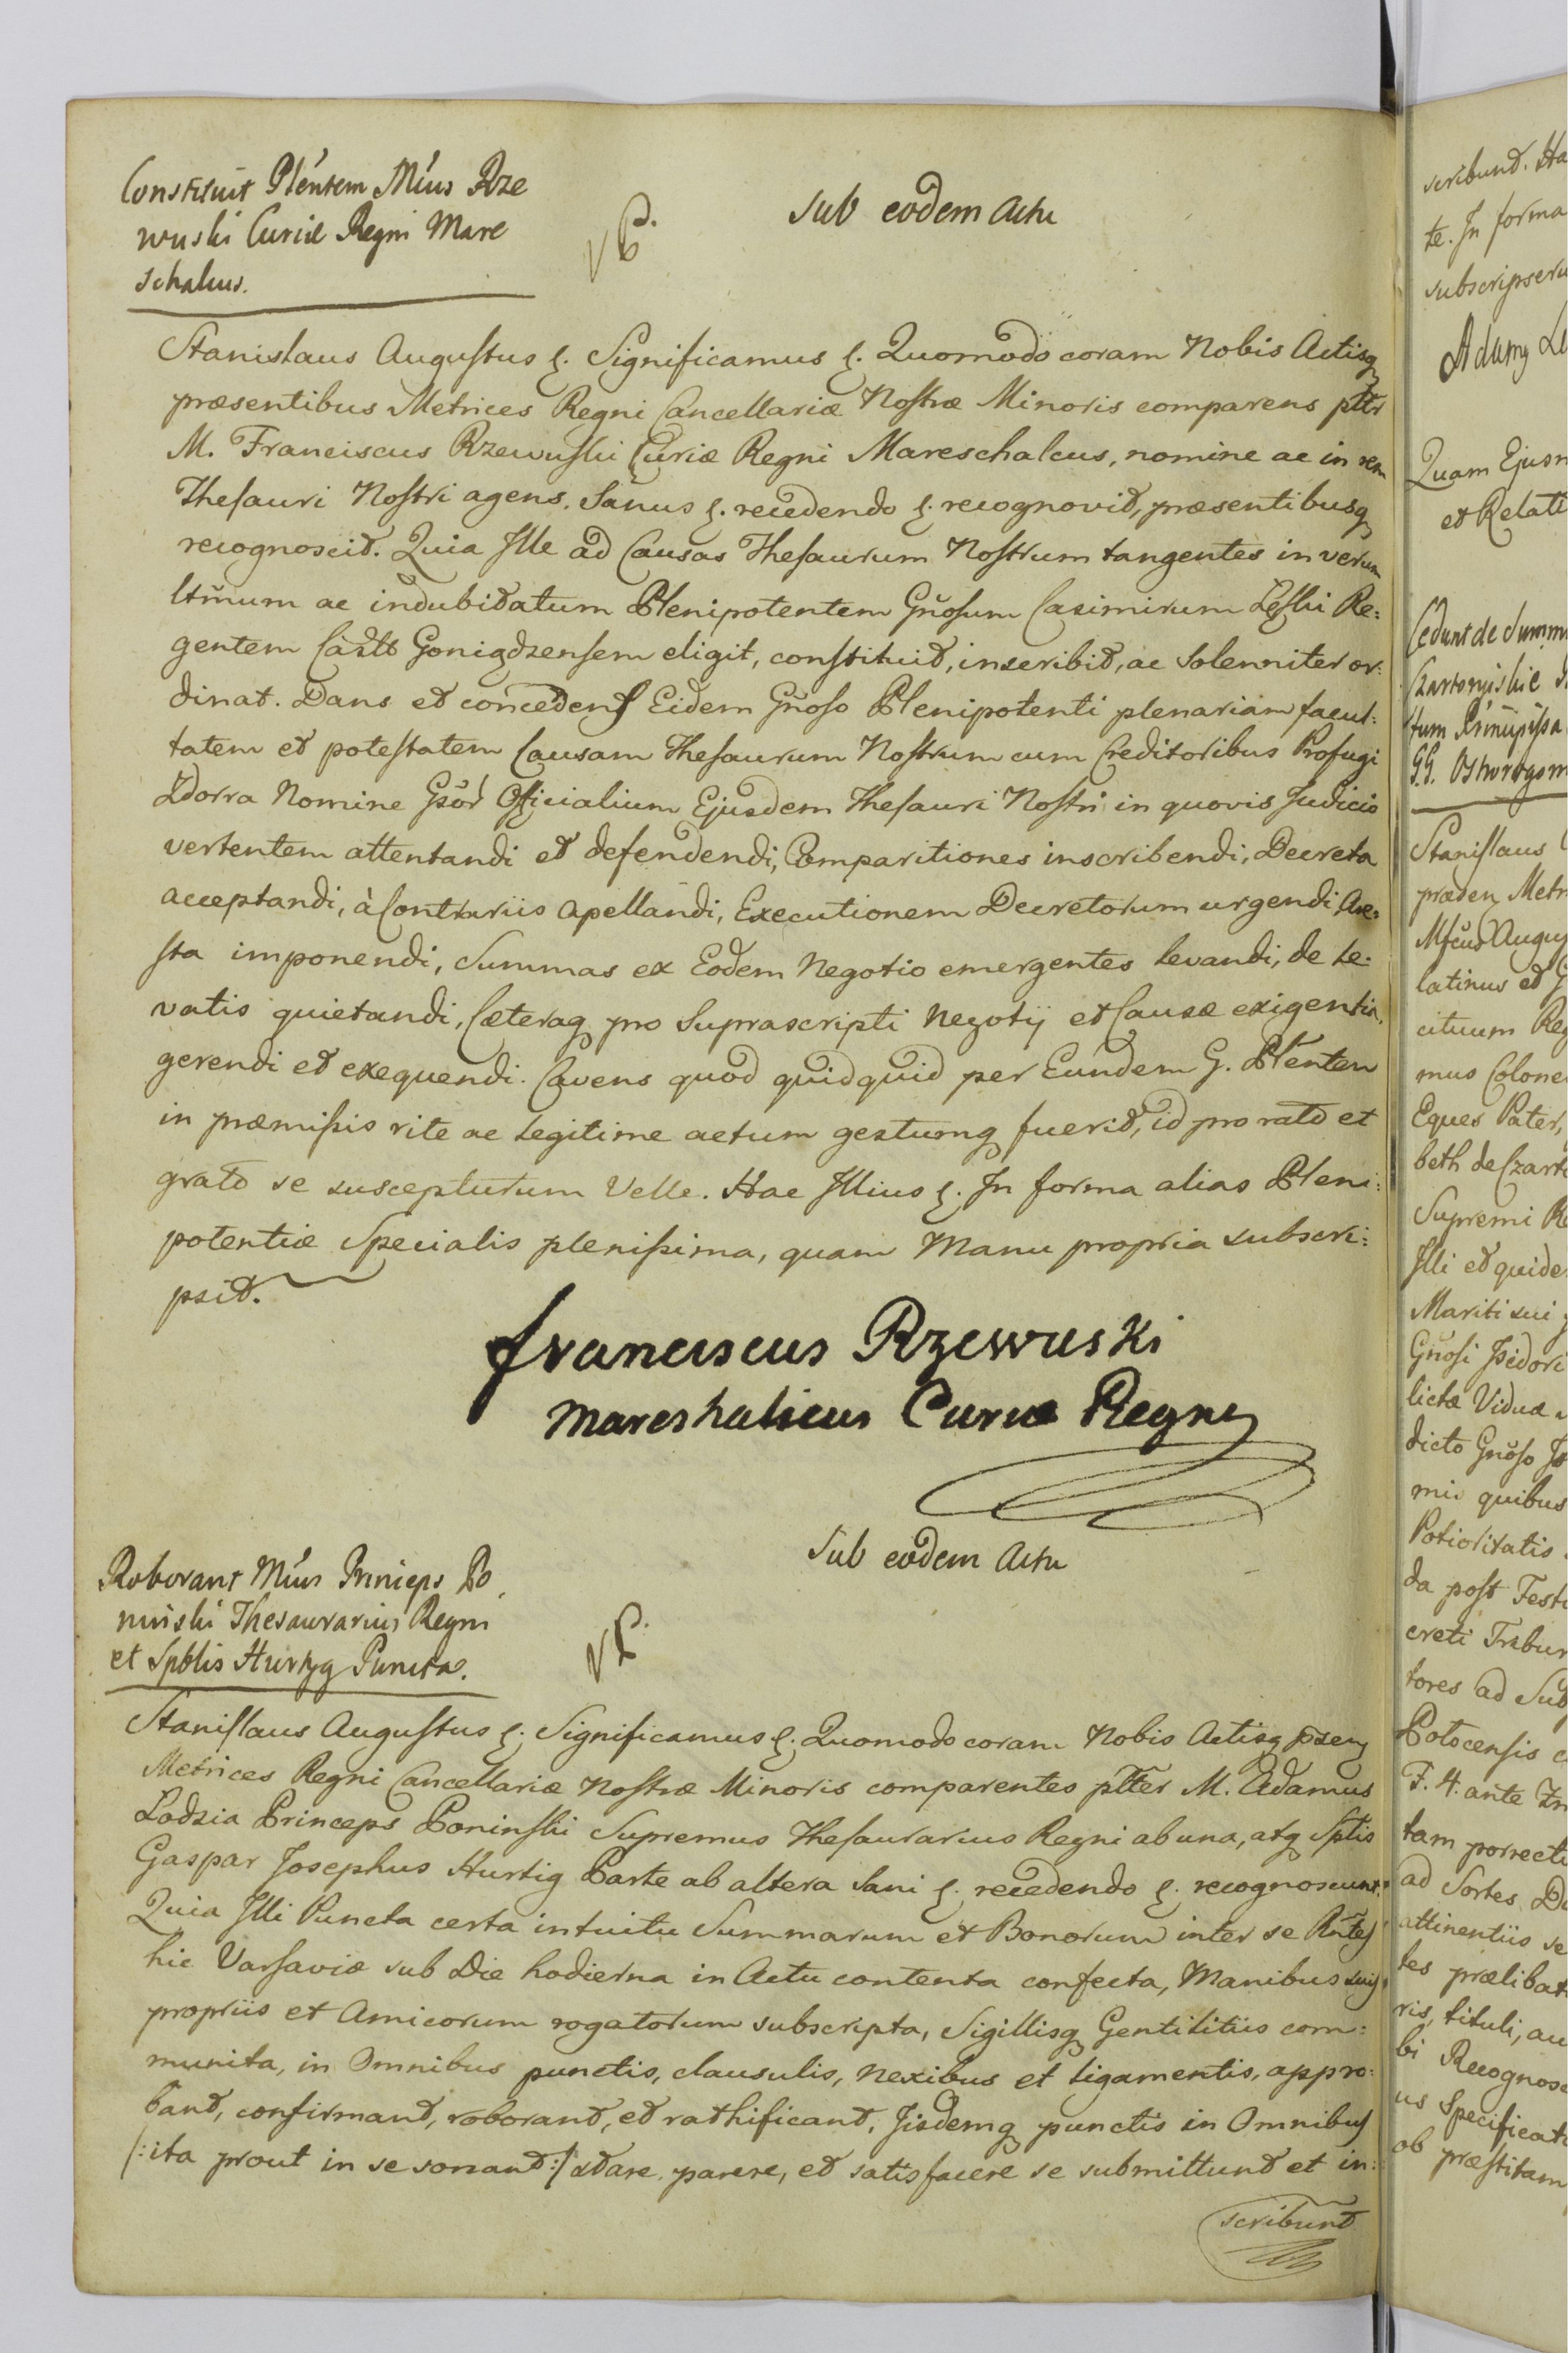 Constituit Pléntem Mꞌcus Rze
wuski Curiæ Regni Mare
schalcus.
Sub eodem Actu
Stanislaus Augustus &. Significamus &. Quomodo coram Nobis Actisq
præsentibus Metrices Regni Cancellariæ Nostræ Minoris comparens pltr
M. Franciscus Rzewuski Curiæ Regni Mareschalcus, nomine ac in rem
Thesauri Nostri agens. Sanus &. recedendo &. recognovit, præsentibusq
recognoscit. Quia Ille ad Causas Thesaurum Nostrum tangentes in verum
ltm̃um ac indubitatum Plenipotentem Gñosum Casimirum Leski Re:
gentem Castr Goniądzensem eligit, constituit, inscribit, ac Solenniter or:
dinat. Dans et concedens Eidem Gñoso Plenipotenti plenariam facul:
tatem et potestatem Causam Thesaurum Nostrum cum Creditoribus Profugi
Zdorra Nomine Gsör Officialium Ejusdem Thesauri Nostri in quovis Judicio
vertentem attentandi et defendendi, Comparitiones inscribendi, Decreta
acceptandi, à Contrariis apellandi, Executionem Decretorum urgendi, Are:
sta imponendi, Summas ex Eodem Negotio emergentes levandi, de le:
vatis quietandi, Cæteraq pro Suprascripti Negotij et Causæ exigentia,
gerendi et exequendi. Cavens quod quidquid per Eundem G. Plenten
in præmissis rite ac legitime actum gestumq fuerit, id pro rato et
grato se suscepturum Velle. Hac Illius &. In forma alias Pleni:
potentiæ Specialis plenissima, quam Manu propria subscri:
psit.
Franciscus Rzewuski
Mareshalicus Curiæ Regni
Sub eodem Actu
Roborant Mꞌcus Princeps Po
niński Thesaurarius Regni
et Spblis Hurtyg Puncta.
Stanislaus Augustus &. Significamus &. Quomodo coram Nobis Actisq psen
Metrices Regni Cancellariæ Nostræ Minoris comparentes pltter M. Adamus
Lodzia Princeps Poninski Supremus Thesaurarius Regni ab una, atq Sptis
Gaspar Josephus Hurtig Parte ab altera Sani &. recedendo &. recognoscunt.
Quia Illi Puncta certa intuitu Summarum et Bonorum inter se Rñtes
hic Varsaviæ sub Die hodierna in Actu contenta confecta, Manibus suis
propriis et Amicorum rogatorum subscripta, Sigillisq Gentilitiis com:
munita, in Omnibus punctis, clausulis, Nexibus et ligamentis, appro:
bant, confirmant, roborant, et rathificant, Iisdemq punctis in Omnibus
/:ita prout in se sonant:/ stare, parere, et satisfacere se submittunt et in:
scribunt
scribunt. Ha
te. In forma
subscripseru
Adamy
Quam Ejusm
et Relati
Cedunt de Summ
Czartoryiskie
Stanislaus
præsen Metr
Mfcus Augus
latinus et G
cituum Reg
mus Colone
Eques Pater,
beth de Czart
Supremi Re
Illi et quide
Mariti sui
Gñosi Isidori
lictæ Viduæ
dicto Gñoso
mis quibus
Potioritatis
da post Festi
creti Tribun
tores ad Sub
Potocensis
F. H. ante
tam porrecti
ad Sortes
attinentiis se
tes prælibat
ris, tituli, au
bi Recognosc
us specificat
ob præstitam